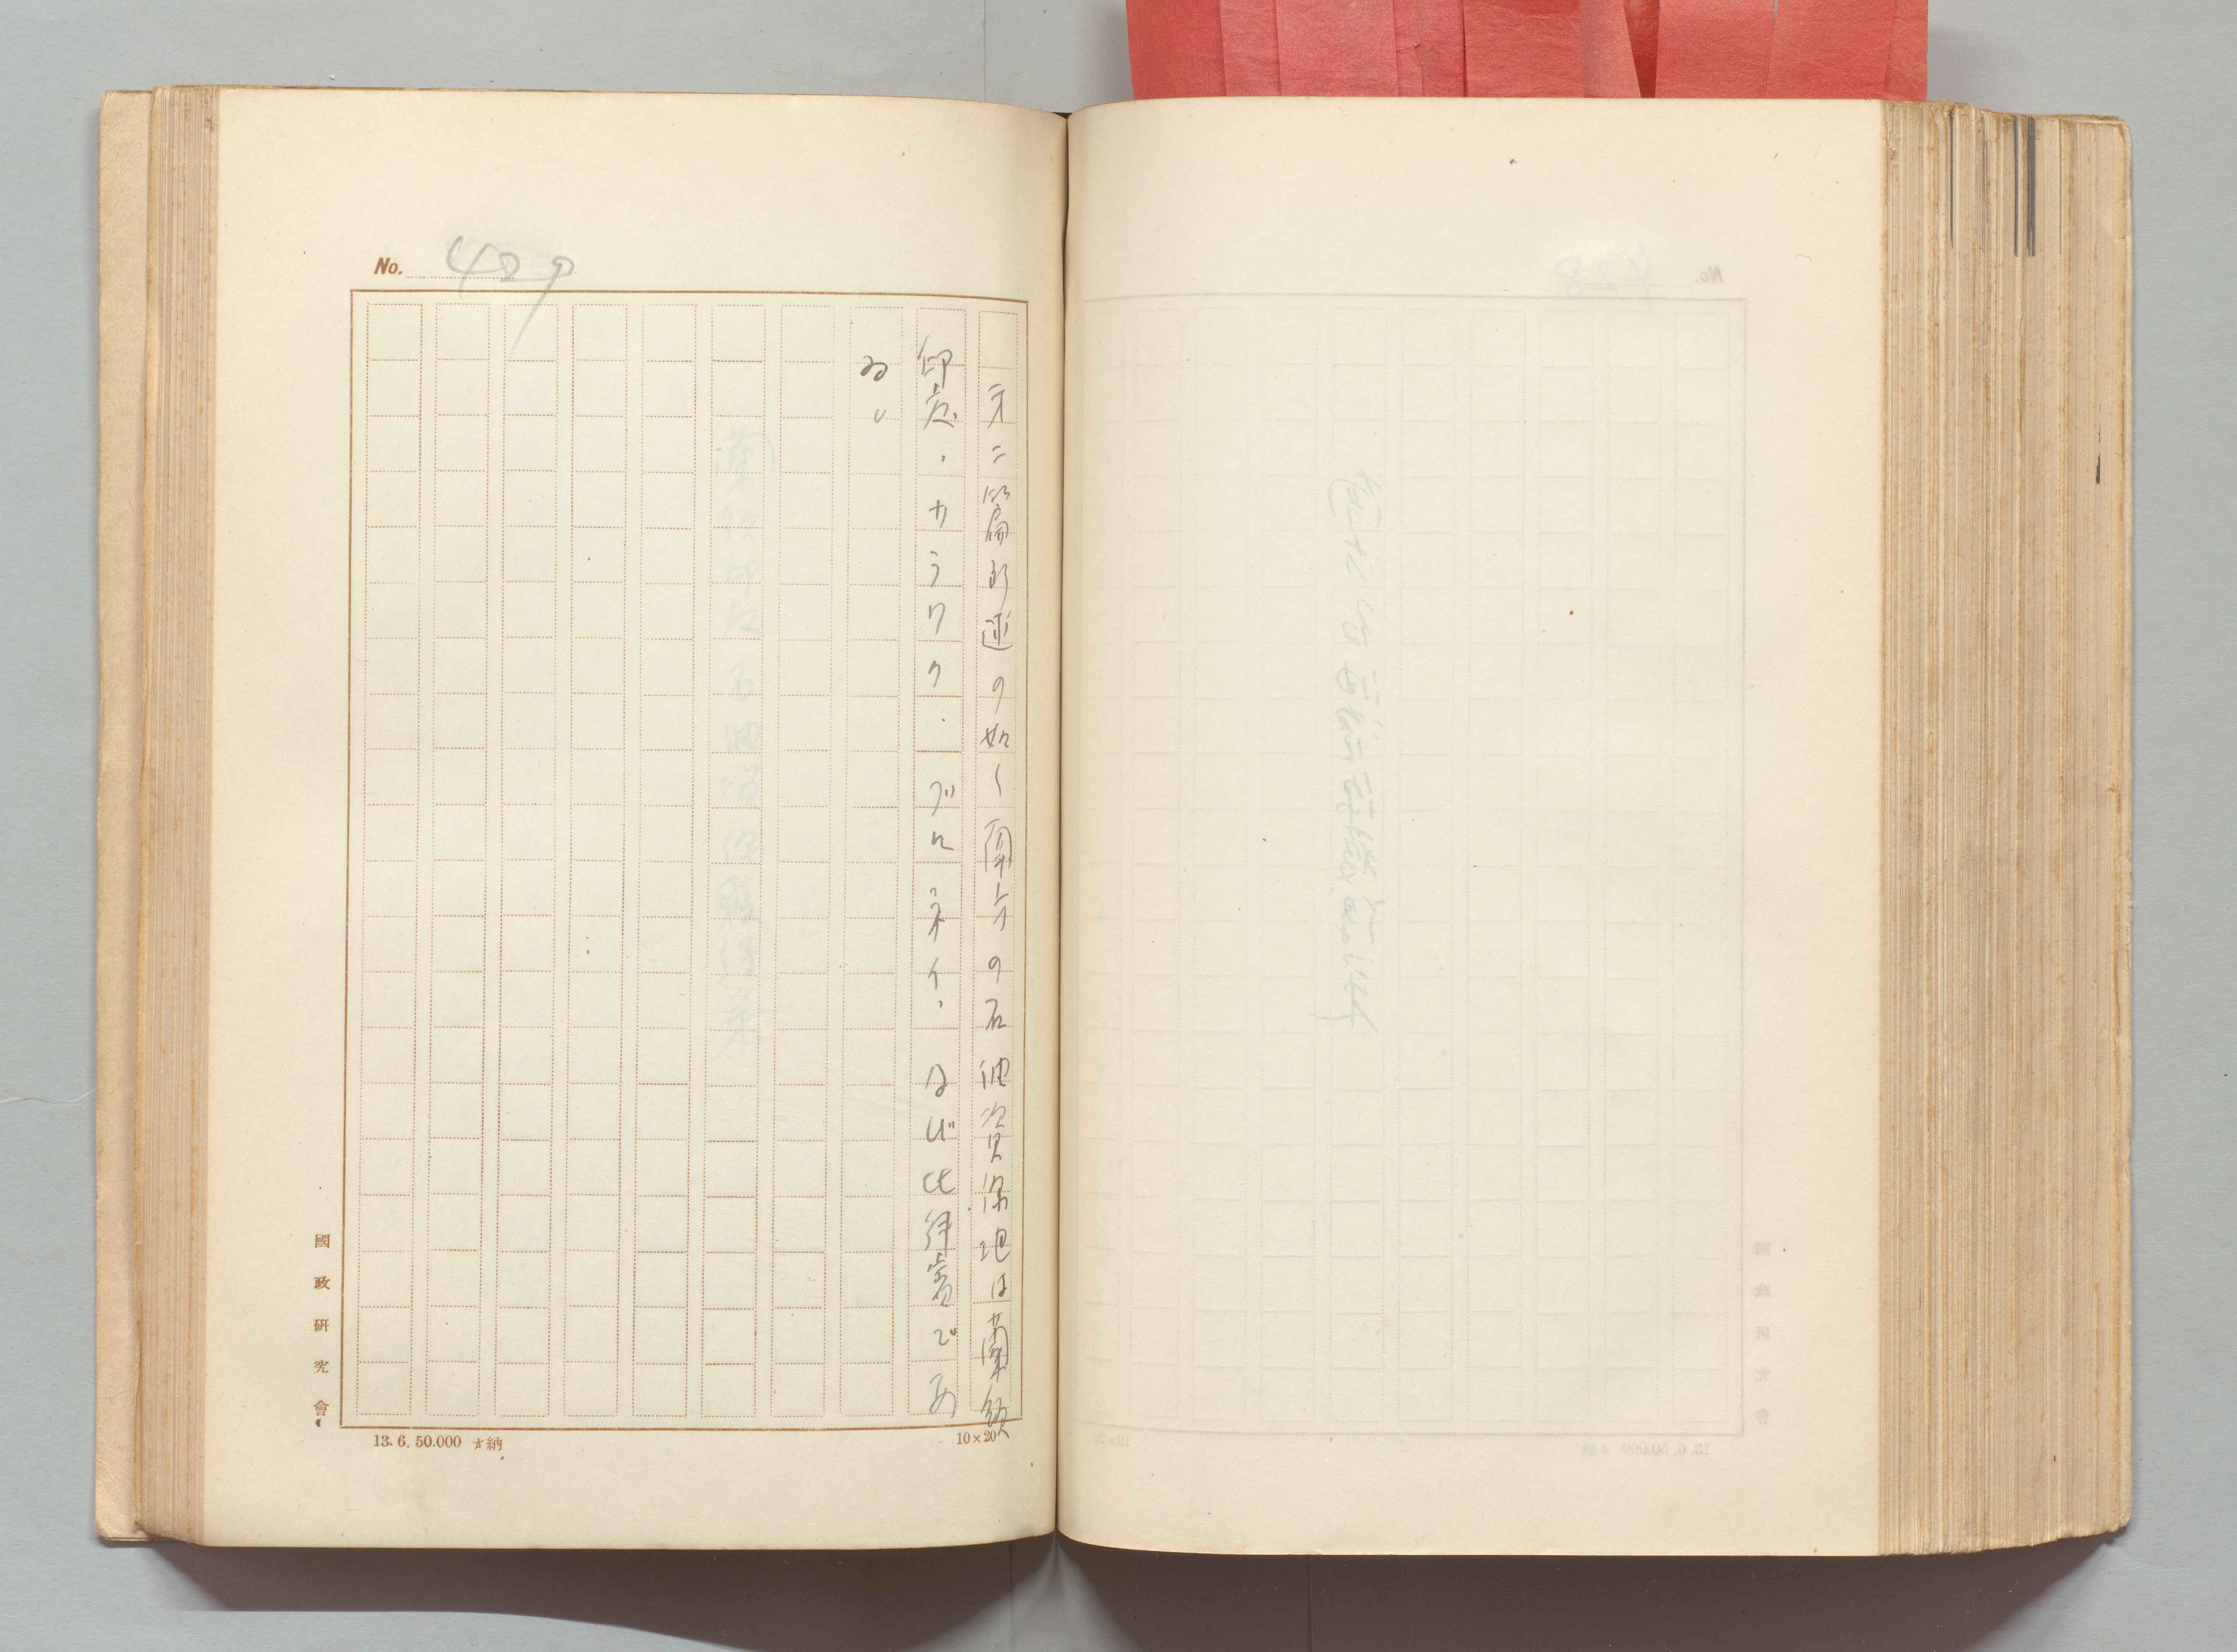 No. 429
才二篇所述の如く南方の石油資源地は蘭領
印度、サラワク、ブルネイ、及び比律賓であ
る。
國政研究會
13. 6. 50.000 納
10×20